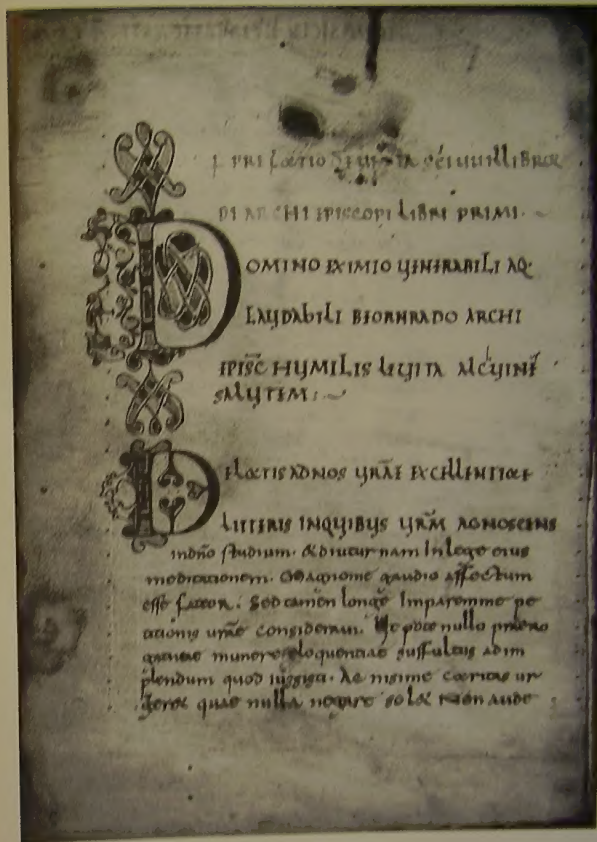 DI ARCHIEPISCOPI LIBRI PRIMI.
DOMINO EXIMIO VENERABILI AQ
LAUDABILI BEORNRADO ARCHI
EPISC HUMILIS LEVITA ALCUINE
SALUTEM:
DELATIS AD NOS VRAE EXCELLENTIAE
LITTERIS IN QUIBUS VRAM AGNOSCENS
in dno studium. & diuturnam In lege eius
meditationem. Magno me gaudio affectum
esse fateor. Sed tamen longe Imparem me pe
titionis vrae consideraui. Ut pote nullo
gratiae munere eloquentiae suffultus ad im
plendum quod iussisti. Ac nisi me caritas ur
geret quae nulla negare solet Non aude